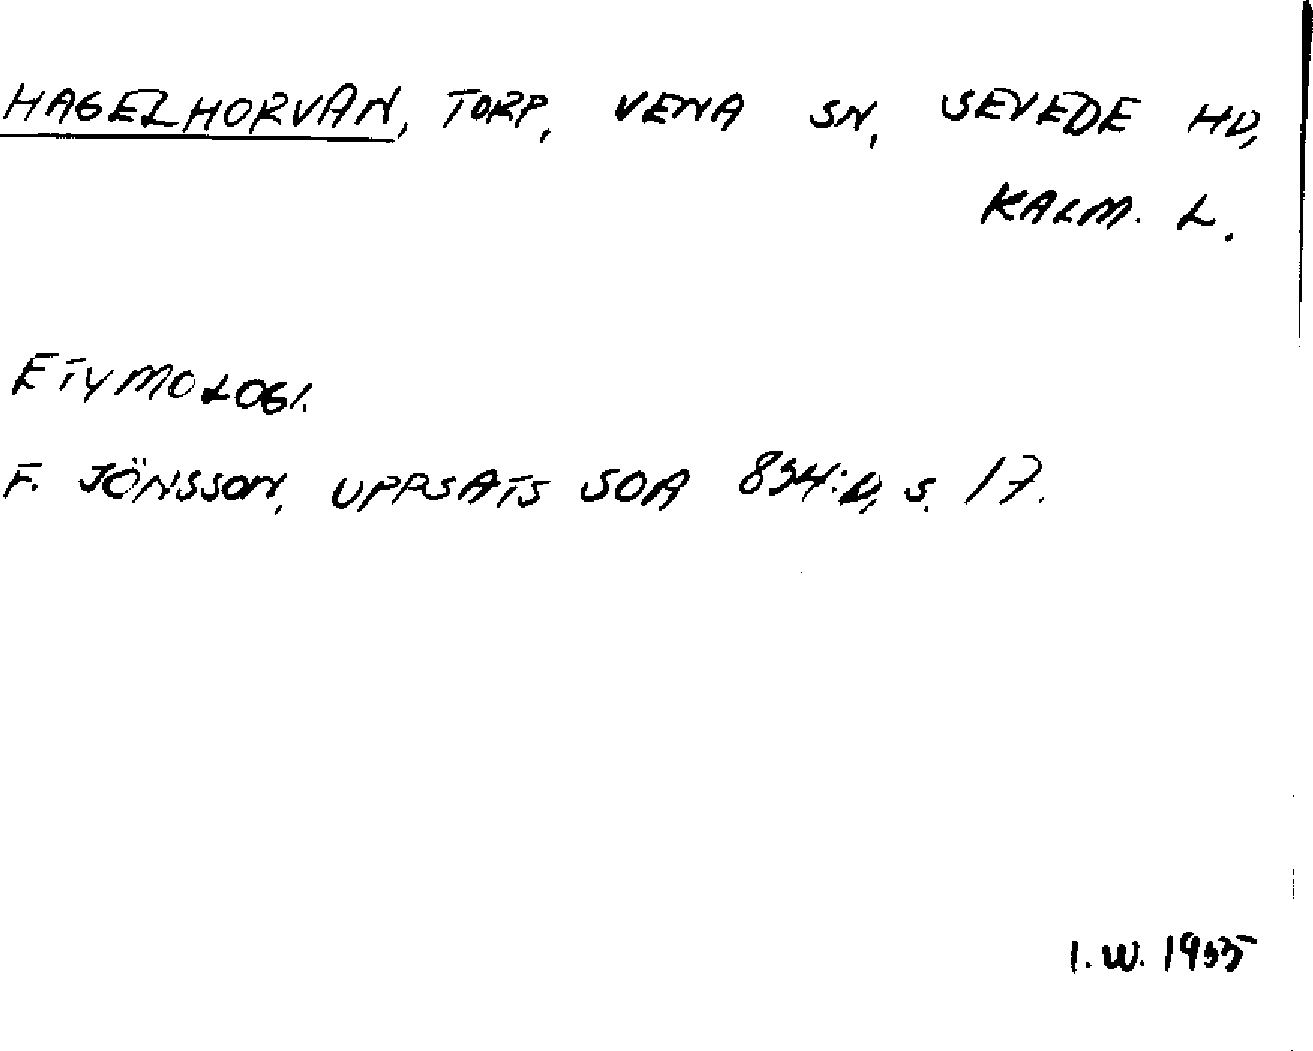 HAGELHORVAN, TORP, VENA SN, SEVEDE HD,
KALM. L.
ETYMOLOGI.
F. JÖNSSON, UPPSATS SOA 834:D, s. 17.
I. W. 1955